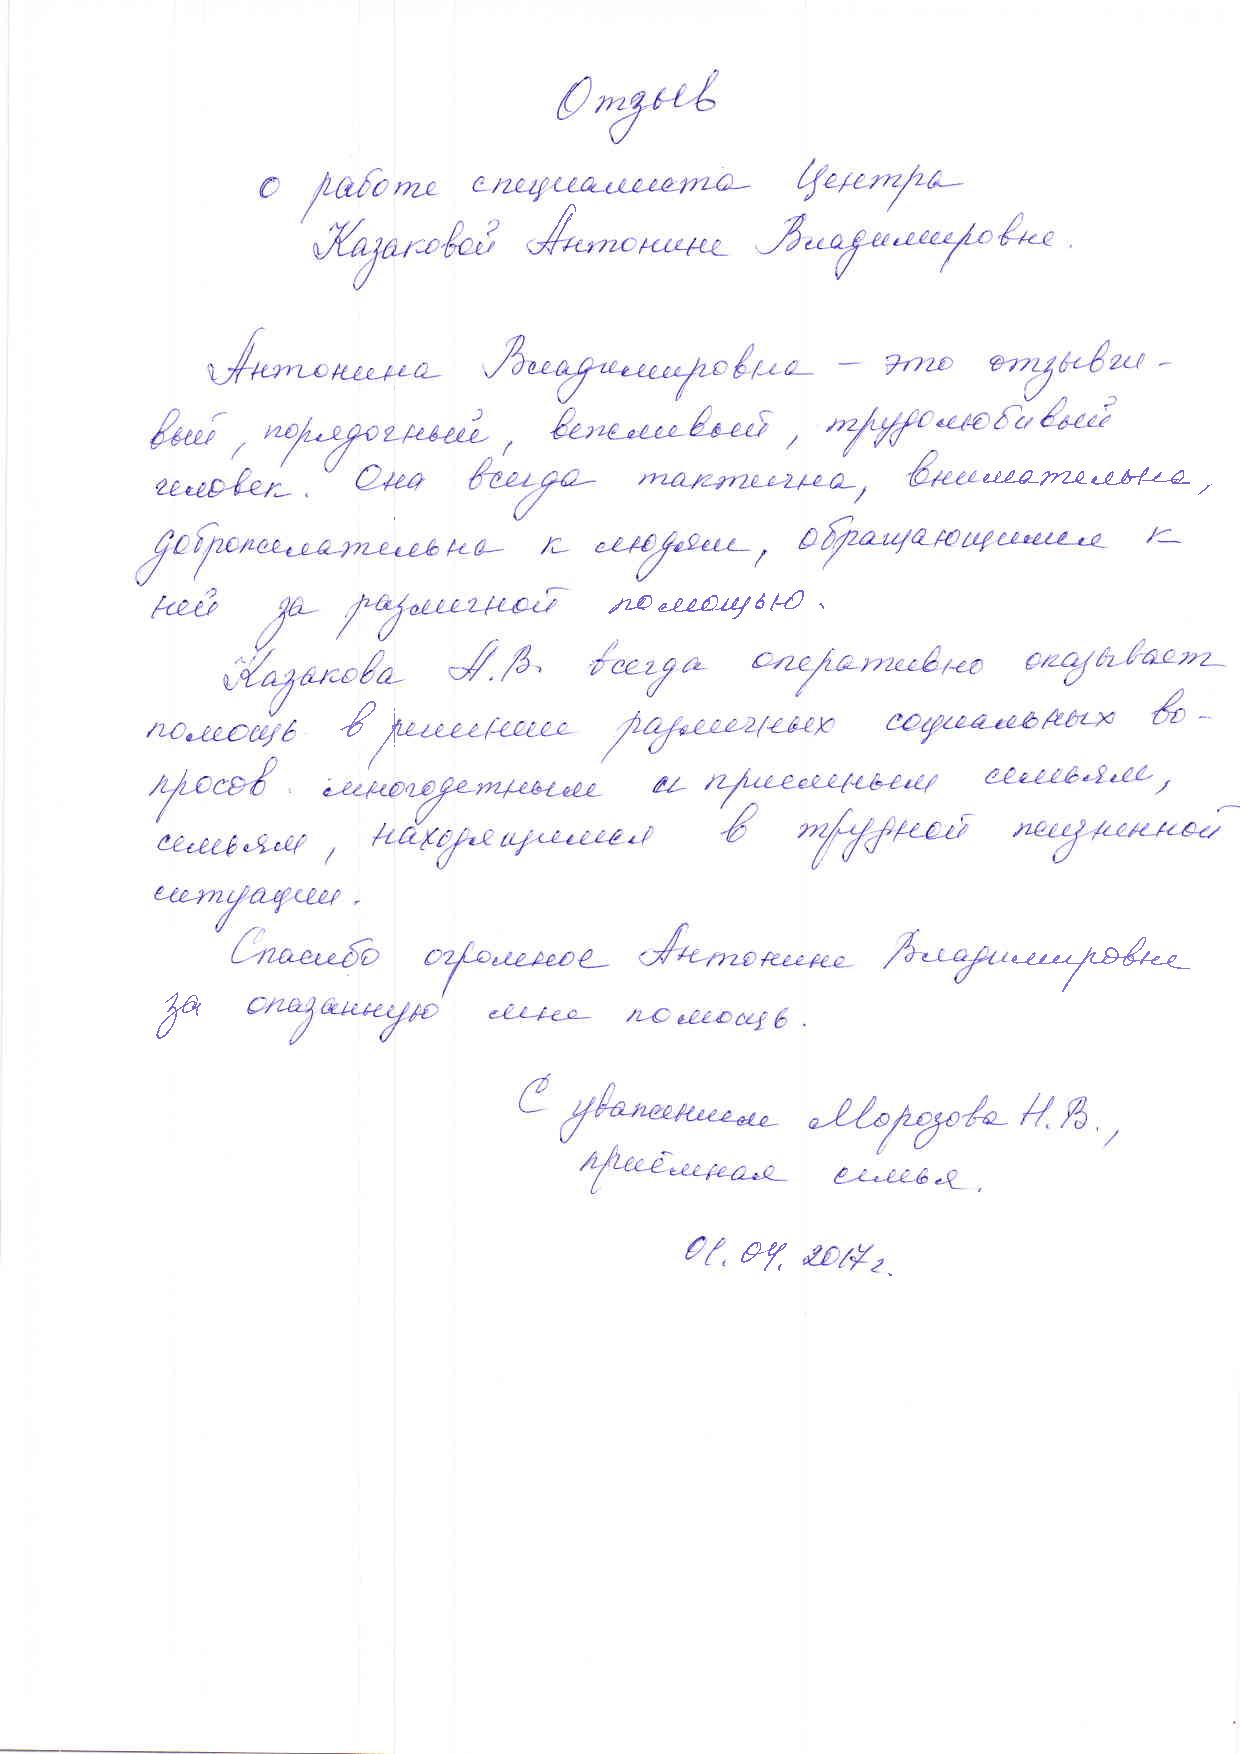 Отзыв
о работе специалиста Центра
Казаковой Антонине Владимировне.
Антонина Владимировна – это отзывчи-
вый, порядочный, вежливый, трудолюбивый
человек. Она всегда тактична, внимательна,
доброжелательна к людям, обращающимся к
ней за различной помощью.
Казакова А.В. всегда оперативно оказывает
помощь в решении различных социальных во-
просов многодетным и приемным семьям,
семьям, находящимся в трудной жизненной
ситуации.
Спасибо огромное Антонине Владимировне
за оказанную мне помощь.
С уважением Морозова Н.В.,
приёмная семья.
01.04.2017г.